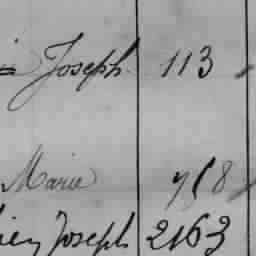 Joseph 113
Marie 718
Joseph 2163